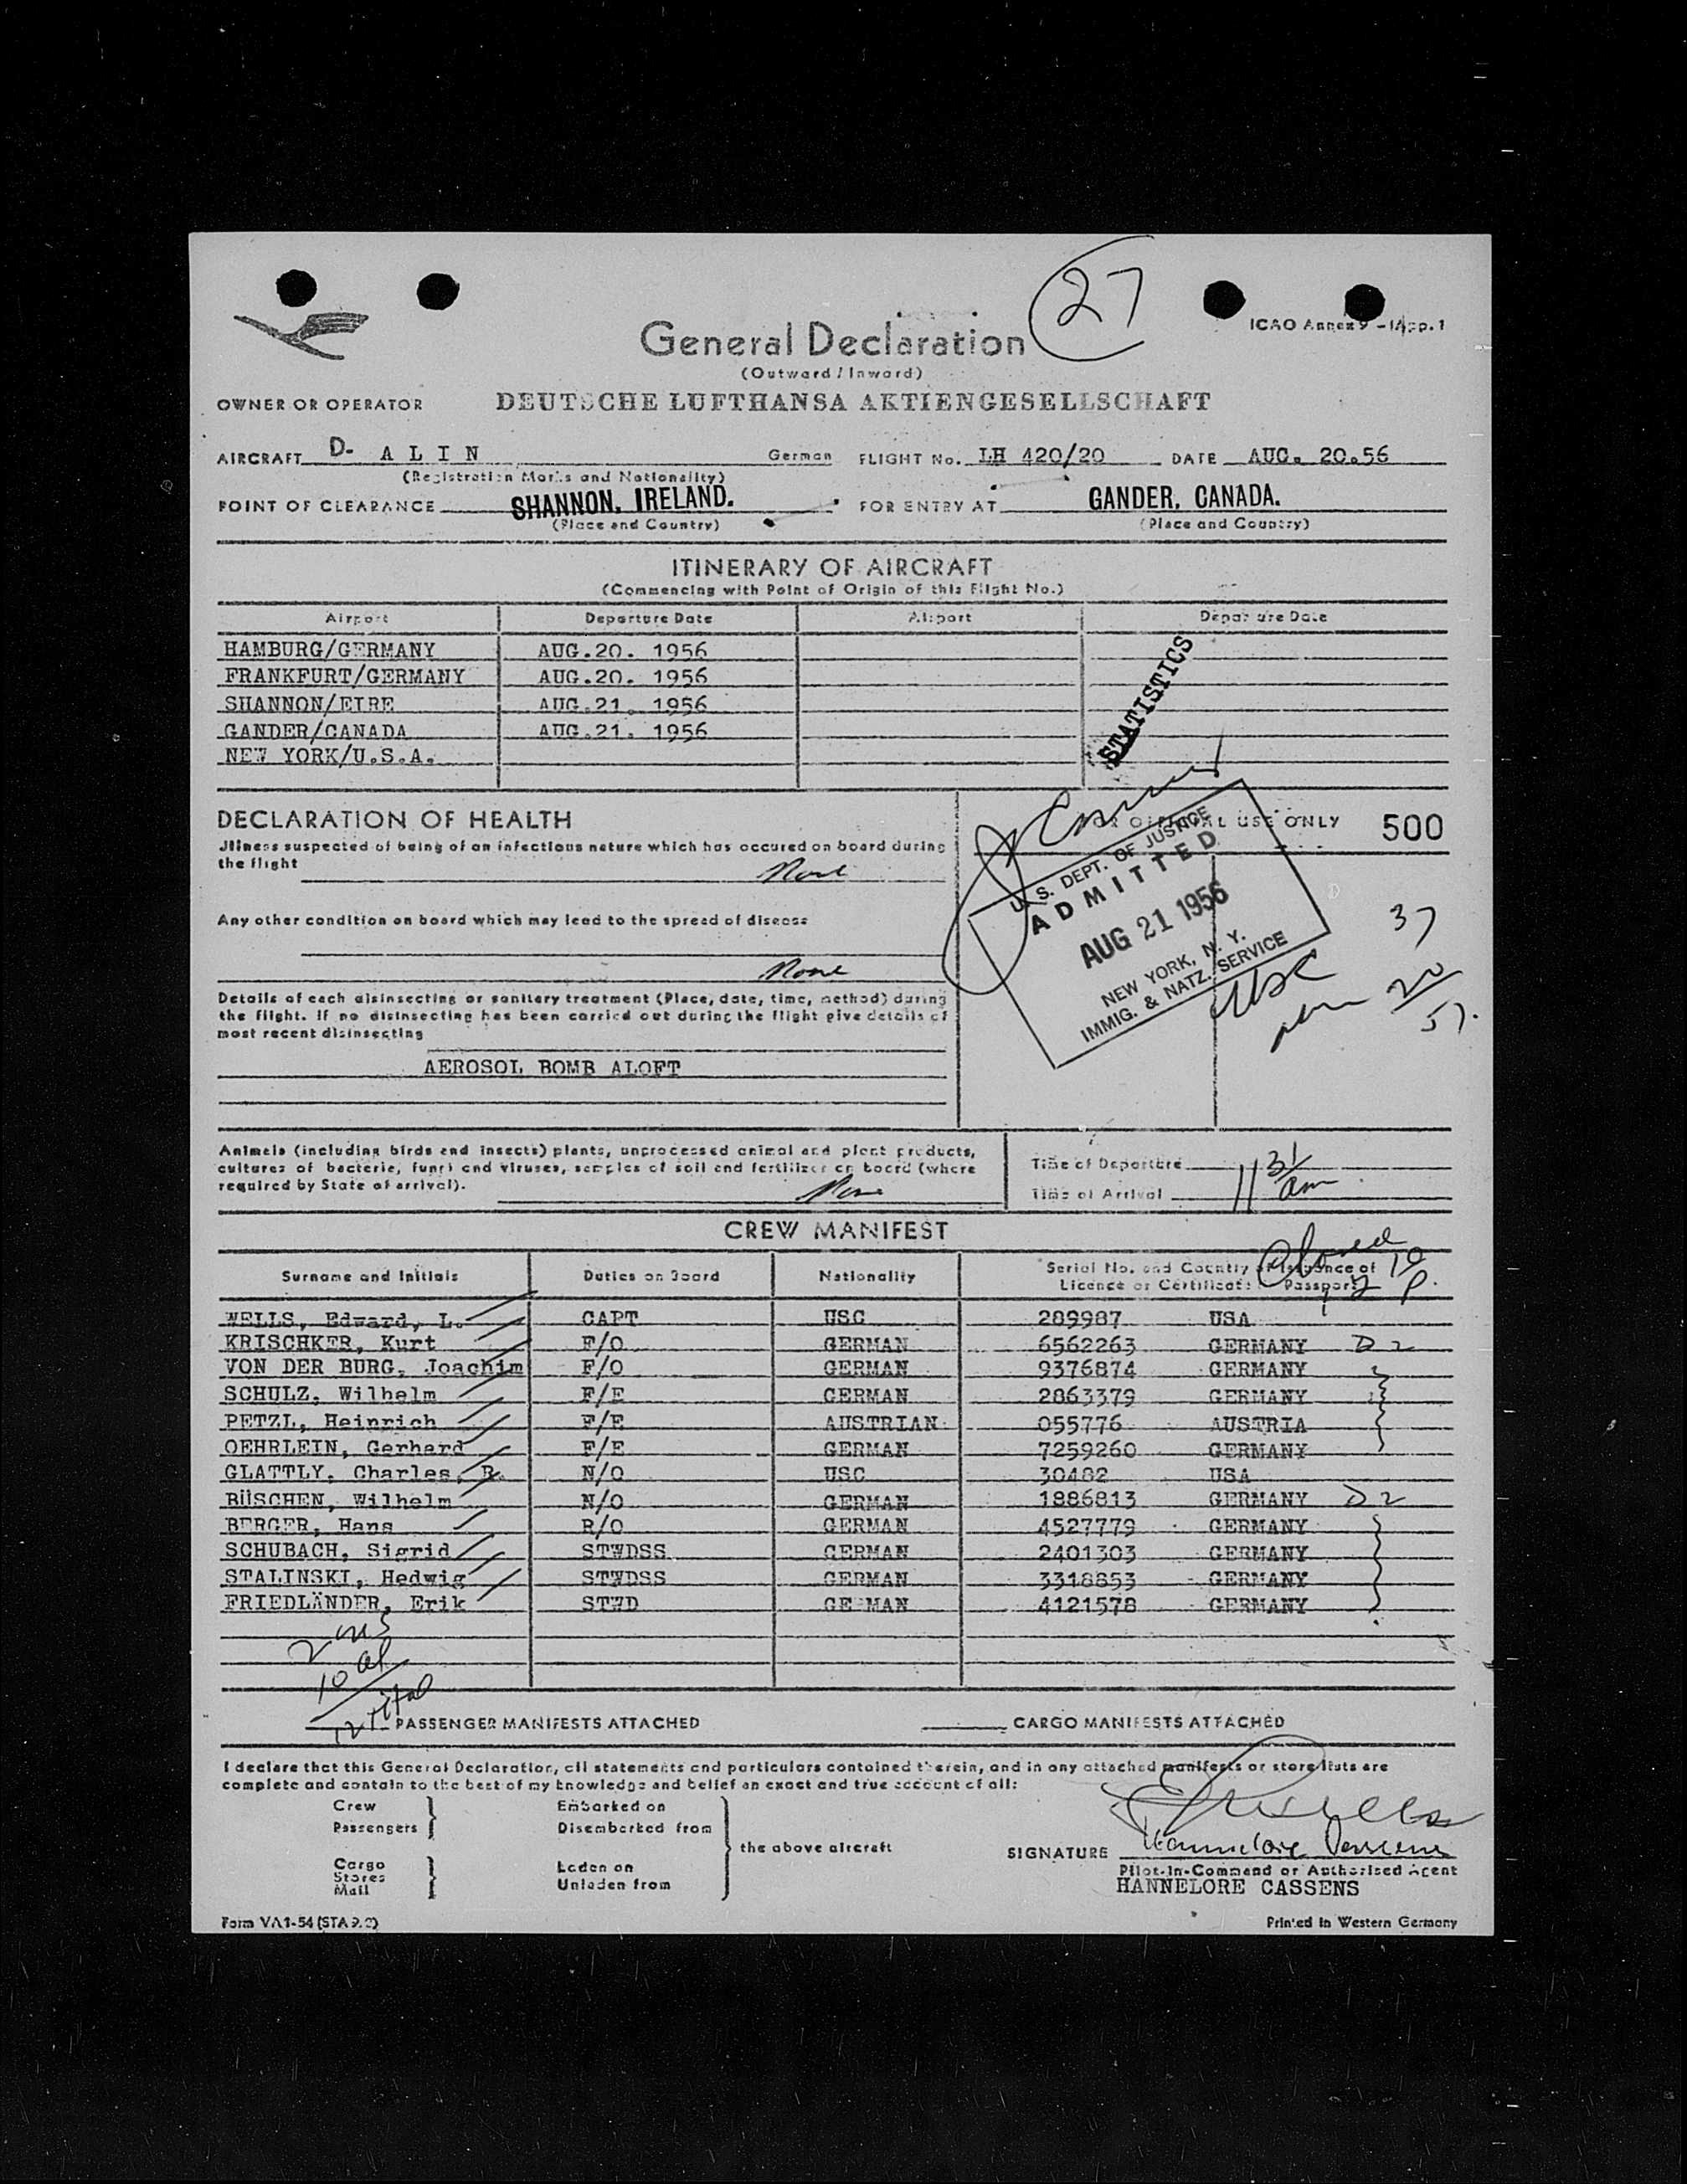 27
ICAO Annex 9 - App. 1
General Declaration
(Outward / Inward)
OWNER OR OPERATOR DEUTSCHE LUFTHANSA AKTIENGESELLSCHAFT
AIRCRAFT D- A L I N German FLIGHT No. LH 420/20 DATE AUG. 20.56
(Registration Marks and Nationality)
POINT OF CLEARANCE SHANNON, IRELAND. FOR ENTRY AT GANDER, CANADA.
(Place and Country) (Place and Country)
ITINERARY OF AIRCRAFT
(Commencing with Point of Origin of this Flight No.)
Airport Departure Date Airport Departure Date
HAMBURG/GERMANY AUG.20. 1956
FRANKFURT/GERMANY AUG.20. 1956
SHANNON/EIRE AUG.21. 1956
GANDER/CANADA AUG.21. 1956
NEW YORK/U.S.A.
STATISTICS
DECLARATION OF HEALTH
Jllness suspected of being of an infectious nature which has occured on board during
the flight None
Any other condition on board which may lead to the spread of disease
None
Details of each disinsecting or sanitary treatment (Place, date, time, method) during
the flight. If no disinsecting has been carried out during the flight give details of
most recent disinsecting
AEROSOL BOMB ALOFT
FOR OFFICIAL USE ONLY 500
U. S. DEPT. OF JUSTICE
ADMITTED
AUG 21 1956
NEW YORK, N. Y.
IMMIG. & NATZ. SERVICE
37
20
57.
Animals (including birds and insects) plants, unprocessed animal and plant products,
cultures of bacterie, fungi and viruses, samples of soil and fertilizer on board (where
required by State of arrival). None
Time of Departure
Time of Arrival 11 31 am
CREW MANIFEST
Surname and Initials Duties on Board Nationality Serial No. and Country of Issuance of
Licence or Certificate Passport
WELLS, Edward, L. CAPT USC 289987 USA
KRISCHKER, Kurt F/O GERMAN 6562263 GERMANY D 2
VON DER BURG, Joachim F/O GERMAN 9376874 GERMANY
SCHULZ, Wilhelm F/E GERMAN 2863379 GERMANY
PETZL, Heinrich F/E AUSTRIAN 055776 AUSTRIA
OEHRLEIN, Gerhard F/E GERMAN 7259260 GERMANY
GLATTLY, Charles, R. N/O USC 30482 USA
BÜSCHEN, Wilhelm N/O GERMAN 1886813 GERMANY D 2
BERGER, Hans R/O GERMAN 4527779 GERMANY
SCHUBACH, Sigrid STWDSS GERMAN 2401303 GERMANY
STALINSKI, Hedwig STWDSS GERMAN 3318853 GERMANY
FRIEDLÄNDER, Erik STWD GE MAN 4121578 GERMANY
2 US
10 al
12 Total
PASSENGER MANIFESTS ATTACHED CARGO MANIFESTS ATTACHED
I declare that this General Declaration, all statements and particulars contained therein, and in any attached manifests or store lists are
complete and contain to the best of my knowledge and belief an exact and true account of all:
Crew Embarked on
Passengers Disembarked from
the above aircraft
Cargo Laden on
Stores
Mail Unladen from
SIGNATURE Hannelore Cassens
Pilot-in-Command or Authorised Agent
HANNELORE CASSENS
Form VA1-54 (STA 9.2)
Printed in Western Germany